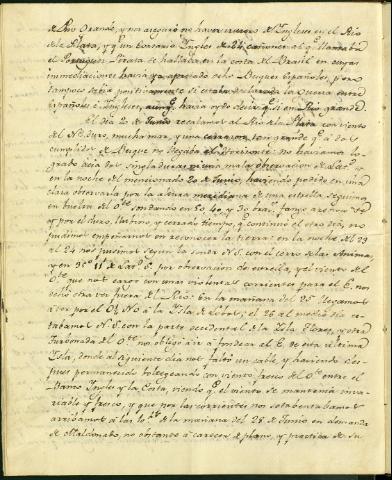 nos aseguró no haver en el Rio
de la Plata, y q.e un Corsario Ingles de 24 cañones al q.e llamaba
el Portugues Pirata se hallaba en la costa del Brasil en cuyas
inmediaciones havia ya apresado ocho Buques Españoles, pero
tampoco savia positivamente si estaba declarada la Guerra entre
Españoles é Ingleses, aunq.e havia oydo decir q.e si en Rio grande.
El dia 20 de Junio recalamos al Rio de la Plata con viento
del N. duro, mucha mar, y una cerrazon tan grande q.e a dos
cumplidos de Buque no llegaba el Orizonte: no haviamos lo-
grado dos singladuras ni una mala observacion de Lat.d y
en la noche del mencionado 20 de Junio, haviendo podido en una
clara observarla por la altura meridiana de una estrella seguimos
en buelta del O.te sondando en 20, 40 y 30 brazas
y por el duro, Ventoso, y cerrado tiempo q.e continuó el otro dia, no
pudimos empeñarnos en reconocer la tierra: en la noche del 23
al 24 nos pusimos segun la sonda N. S. con el cerro de las Animas,
y en 35° 11' de Lat.d S. por observacion de estrella, y el viento del
O. que nos cargó con una violenta corriente para el E. nos
hechó otra vez fuera del Rio. En la mañana del 25 llegamos
á ver por el O¼ NO á la Isla de Lobos; el 26 al medio dia es-
tabamos N. S. con la parte occidental de la Isla Flores, y otra
turbonada del O.te nos obligó a ir á fondear al E. de esta ultima
Isla, donde al siguiente dia nos faltó un cable, y haviendo des-
pues permanecido bolteqeando con viento fresco del O. entre el
Banco Ingles y la Costa, viendo q.e el viento se mantenia inva-
riable y fresco, y que por las corrientes nos sotaventabamos
arribamos á las 10 de la mañana del 28 de Junio en demanda
de Maldonado, no obstante á carecer de plano, y practica de su